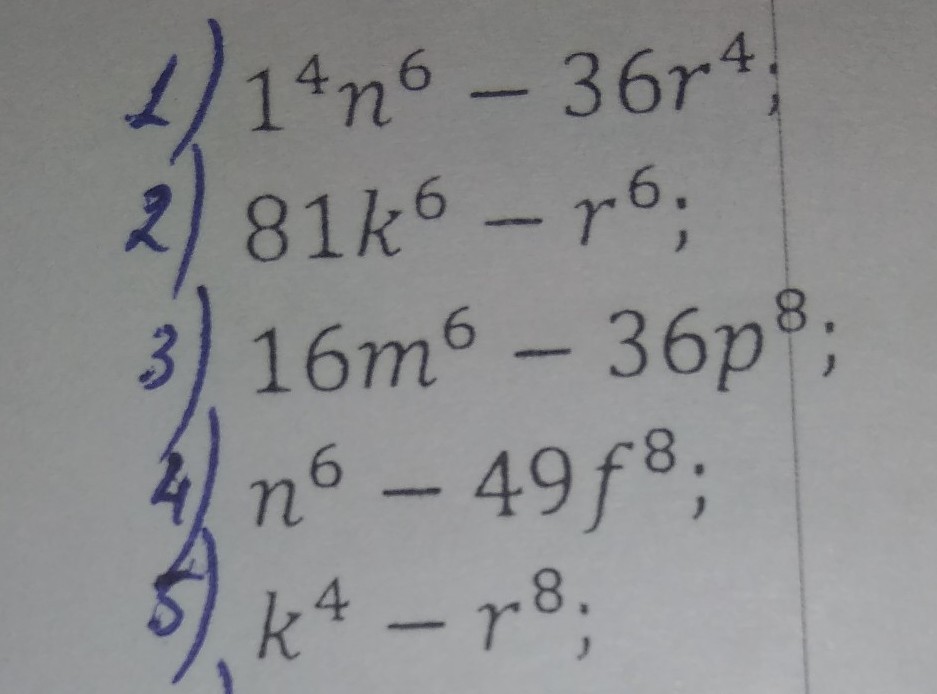 1) 1⁴n⁶ − 36r⁴;
2) 81k⁶ − r⁶;
3) 16m⁶ − 36p⁸;
4) n⁶ − 49f⁸;
5) k⁴ − r⁸;